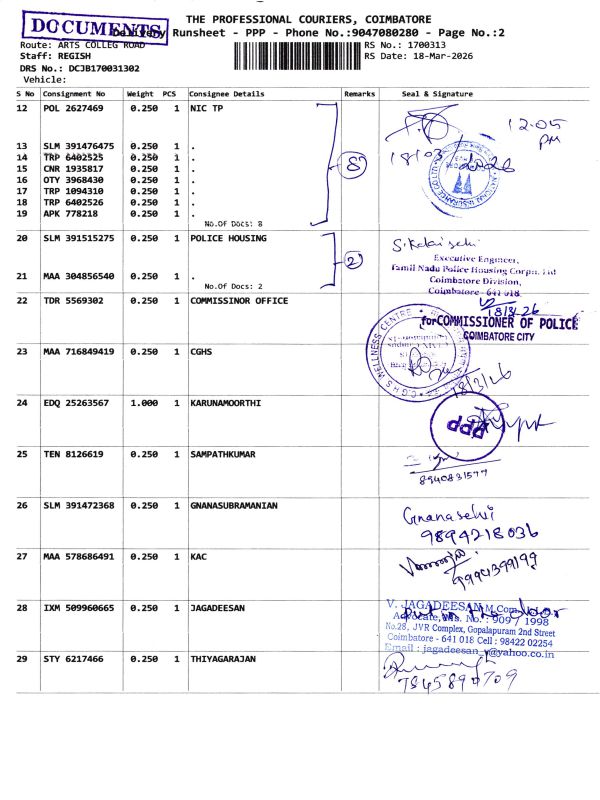 THE PROFESSIONAL COURIERS, COIMBATORE
DOCUMENTS
Delivery Runsheet - PPP - Phone No.:9047080280 - Page No.:2
Route: ARTS COLLEG ROAD
RS No.: 1700313
Staff: REGISH
RS Date: 18-Mar-2026
DRS No.: DCJB170031302
Vehicle:
S No Consignment No Weight PCS Consignee Details Remarks Seal & Signature
12 POL 2627469 0.250 1 NIC TP
12-05
PM
13 SLM 391476475 0.250 1 .
14 TRP 6402525 0.250 1 .
15 CNR 1935817 0.250 1 .
16 OTY 3968430 0.250 1 .
17 TRP 1094310 0.250 1 .
18 TRP 6402526 0.250 1 .
19 APK 778218 0.250 1 .
No.Of Docs: 8
8
18/03/2026
20 SLM 391515275 0.250 1 POLICE HOUSING
21 MAA 304856540 0.250 1 .
No.Of Docs: 2
2
S. Kalaiselvi
Executive Engineer,
Tamil Nadu Police Housing Corpn. Ltd
Coimbatore Division,
Coimbatore - 641 018.
22 TDR 5569302 0.250 1 COMMISSINOR OFFICE
18/3/26
for COMMISSIONER OF POLICE
COIMBATORE CITY
23 MAA 716849419 0.250 1 CGHS
C.G.H.S WELLNESS CENTRE
18/3/26
24 EDQ 25263567 1.000 1 KARUNAMOORTHI
ddd
25 TEN 8126619 0.250 1 SAMPATHKUMAR
8940831577
26 SLM 391472368 0.250 1 GNANASUBRAMANIAN
Gnanaselvi
9894218036
27 MAA 578686491 0.250 1 KAC
9994399199
28 IXM 509960665 0.250 1 JAGADEESAN
put in the door
V. JAGADEESAN, M.Com.,
Advocate, Ms. No. : 909 / 1998
No.28, JVR Complex, Gopalapuram 2nd Street
Coimbatore - 641 018 Cell : 98422 02254
Email : jagadeesan_v@yahoo.co.in
29 STY 6217466 0.250 1 THIYAGARAJAN
7845890709